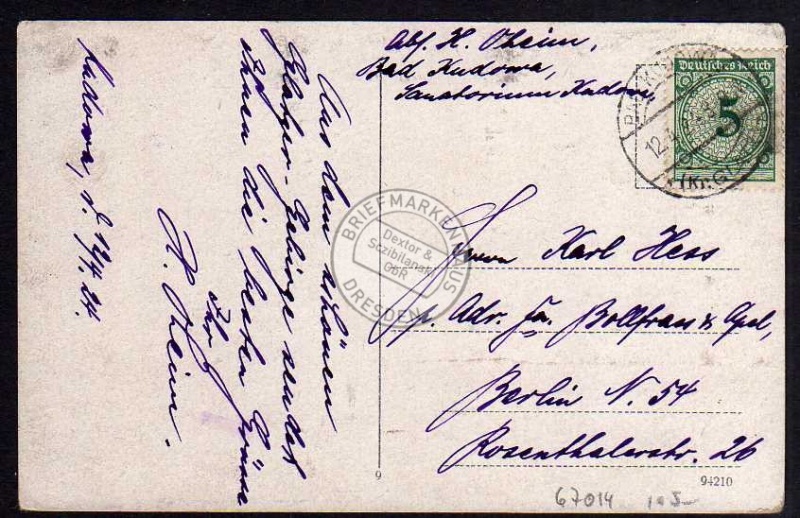 Kudowa, d. 12/4.24.
Aus dem schönen
Glatzer-Gebirge sendet
ihnen die besten Grüsse
Ihr
H. Oheim.
Abs. H. Oheim,
Bad Kudowa,
Sanatorium Kudowa
Deutsches Reich
5
12.4
(Kr.G
Herrn Karl Hess
p. Adr. Fa. Bollfrass & Apel,
Berlin N. 54
Rosenthalerstr. 26
BRIEFMARKENHAUS
Dextor &
Sczibilanski
GbR
DRESDEN
9
94210
67014